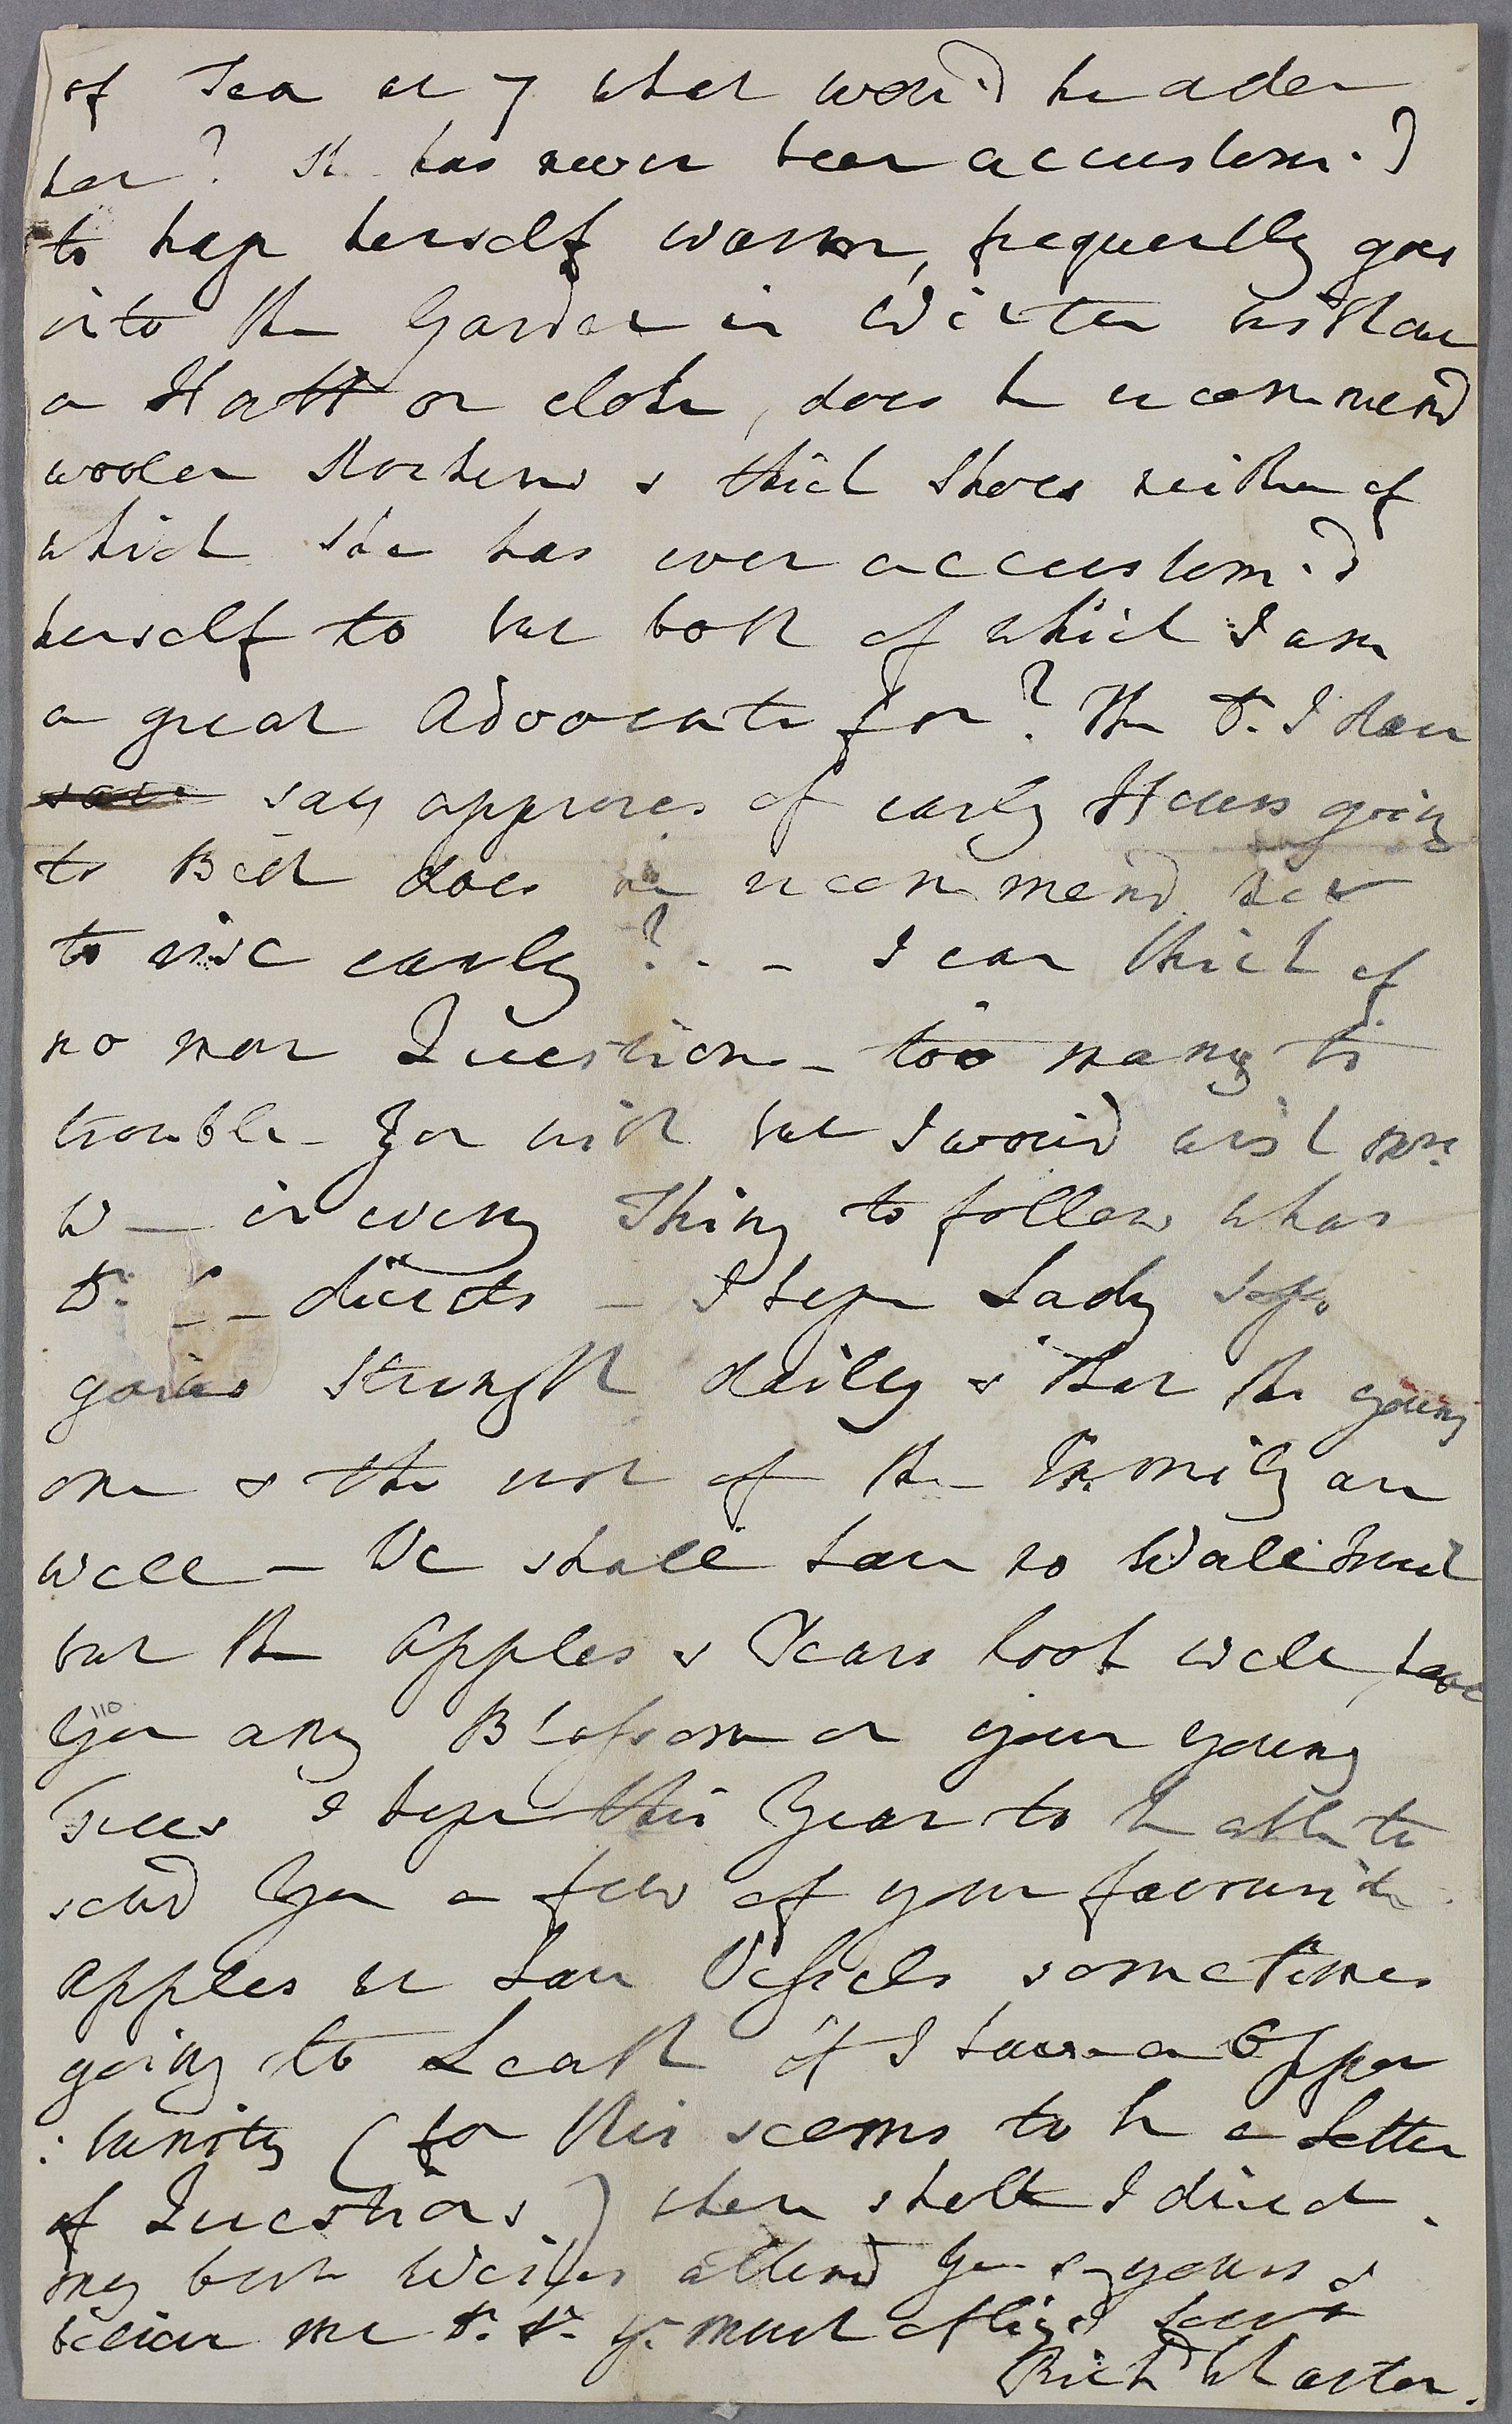 of Tea at 7 what wou'd he order
her? She has never been accustom'd
to keep herself warm, frequently goes
into the Garden in Winter without
a Hatt or cloke, does he recommend
woolen Stockens & thick Shoes neither of
which she has ever accustom'd
herself to but both of which I am
a great Advocate for? The Dr. I dare
say approves of early Hours going
to Bed does he recommend her
to rise early? - I can think of
no more Questions - too many to
trouble You with but I wou'd wish Mrs.
W— in every Thing to follow what
Dr. directs - I hope Lady
gains Strength daily & that the young
one & the rest of the Family are
well - We shall have no Wall Fruit
but the Apples & Pears look well, have
110
You any Blossom on your young
Trees I hope this Year to be able to
send You a few of your favourite
Apples we have Vessels sometimes
going to Leath if I have an Oppor
:tunity (for this seems to be a Letter
of Questions) where shall I direct.
my best Wishes attend You & yours &
believe me Dr. Sr. yr. much oblig'd Servt
Richd Wharton.